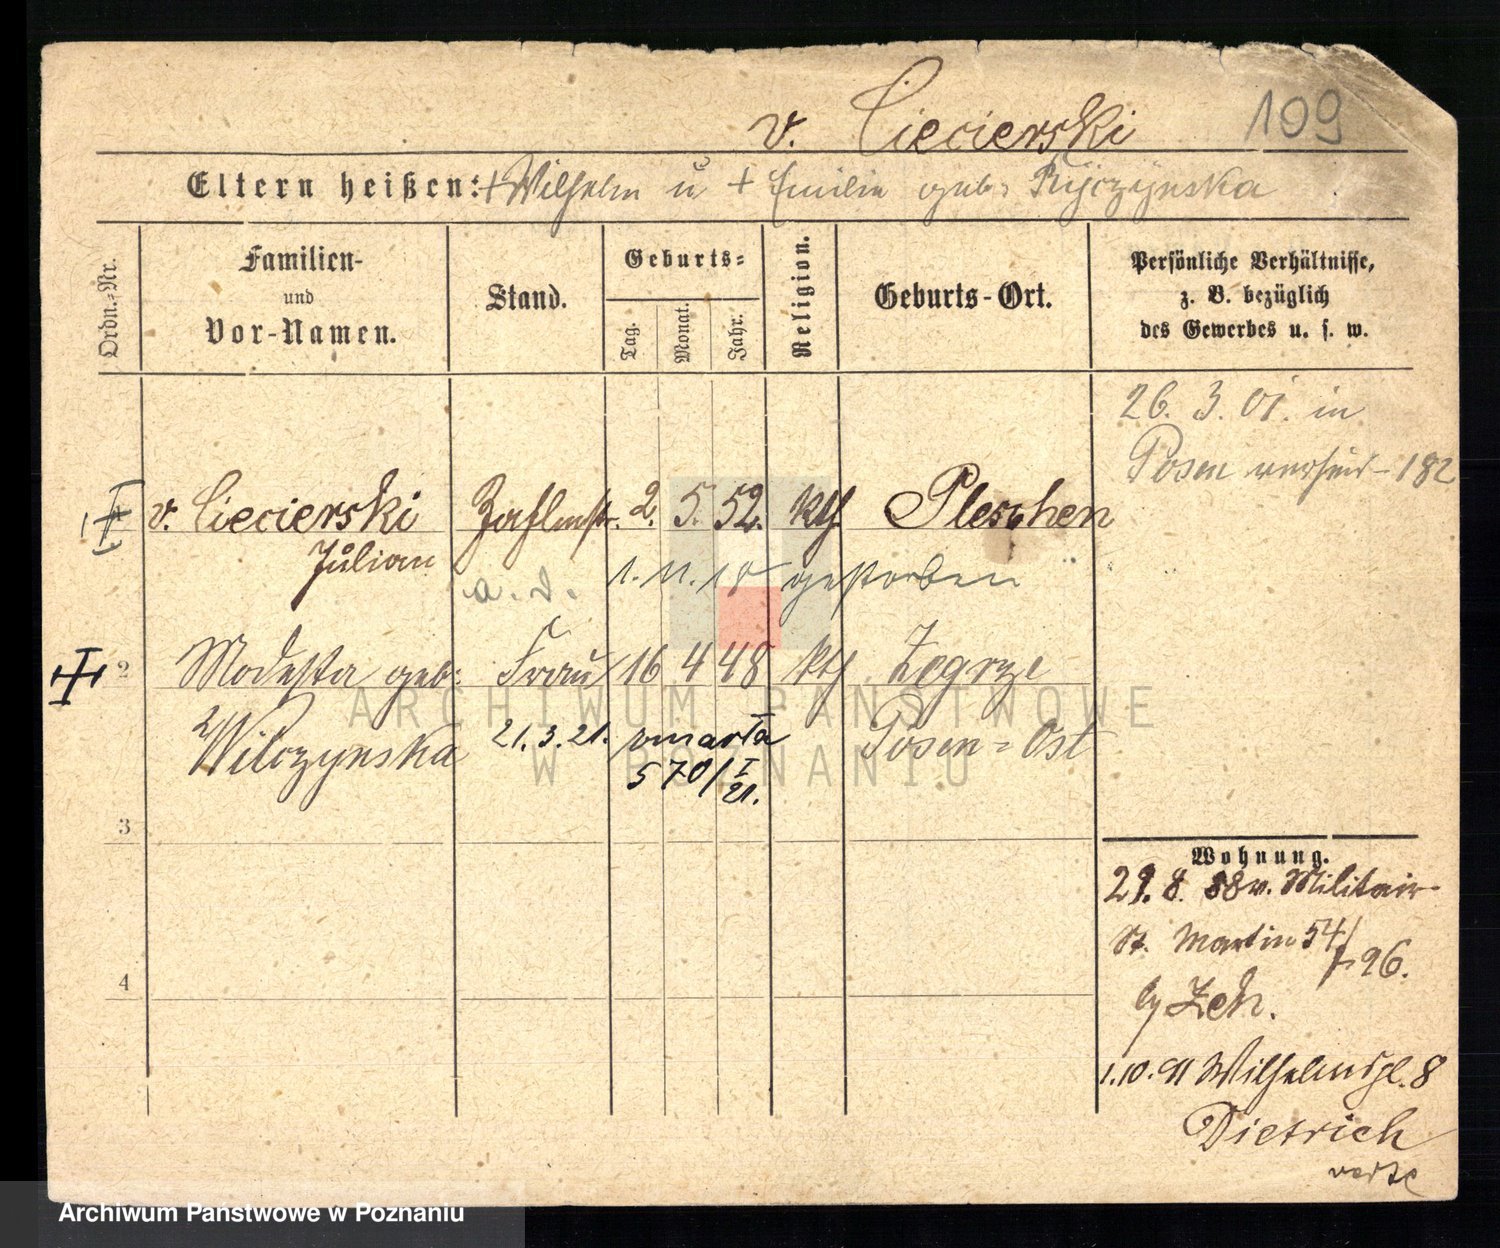 v. Ciecierski 109
Eltern heißen: + Wilhelm u + Emilie geb.
Ordn.-Nr.
Familien-
und
Vor-Namen.
Stand.
Geburts-
Tag.
Monat.
Jahr.
Religion.
Geburts-Ort.
Persönliche Verhältnisse,
z. B. bezüglich
des Gewerbes u. s. w.
26. 3. 01. in
Posen 182
v. Ciecierski Zahlmstr. 2. 5. 52. kth Pleschen
Julian
a. D. 1. 11. 18 gestorben
2 Modesta geb. Frau 16 4 48 kth Zegrze
Wilczynska 21.3.21. umarła Posen-Ost
570/I
21.
3
4
Wohnung.
29. 8. 88 v. Militair
St. Martin 54/
96.
by Zeh.
1.10.91 Wilhelmspl. 8
Dietrich
verte
ARCHIWUM PAŃSTWOWE
W POZNANIU
Archiwum Państwowe w Poznaniu